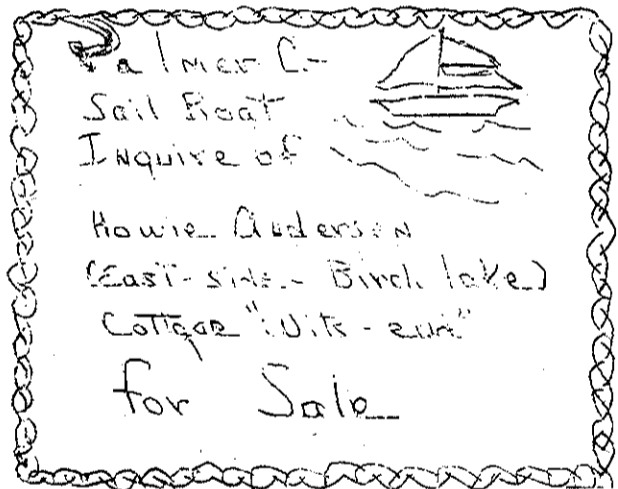 Palmer C-
Sail Boat
Inquire of
Howie Anderson
(East-side- Birch lake)
Cottage "Wits-end"
for Sale